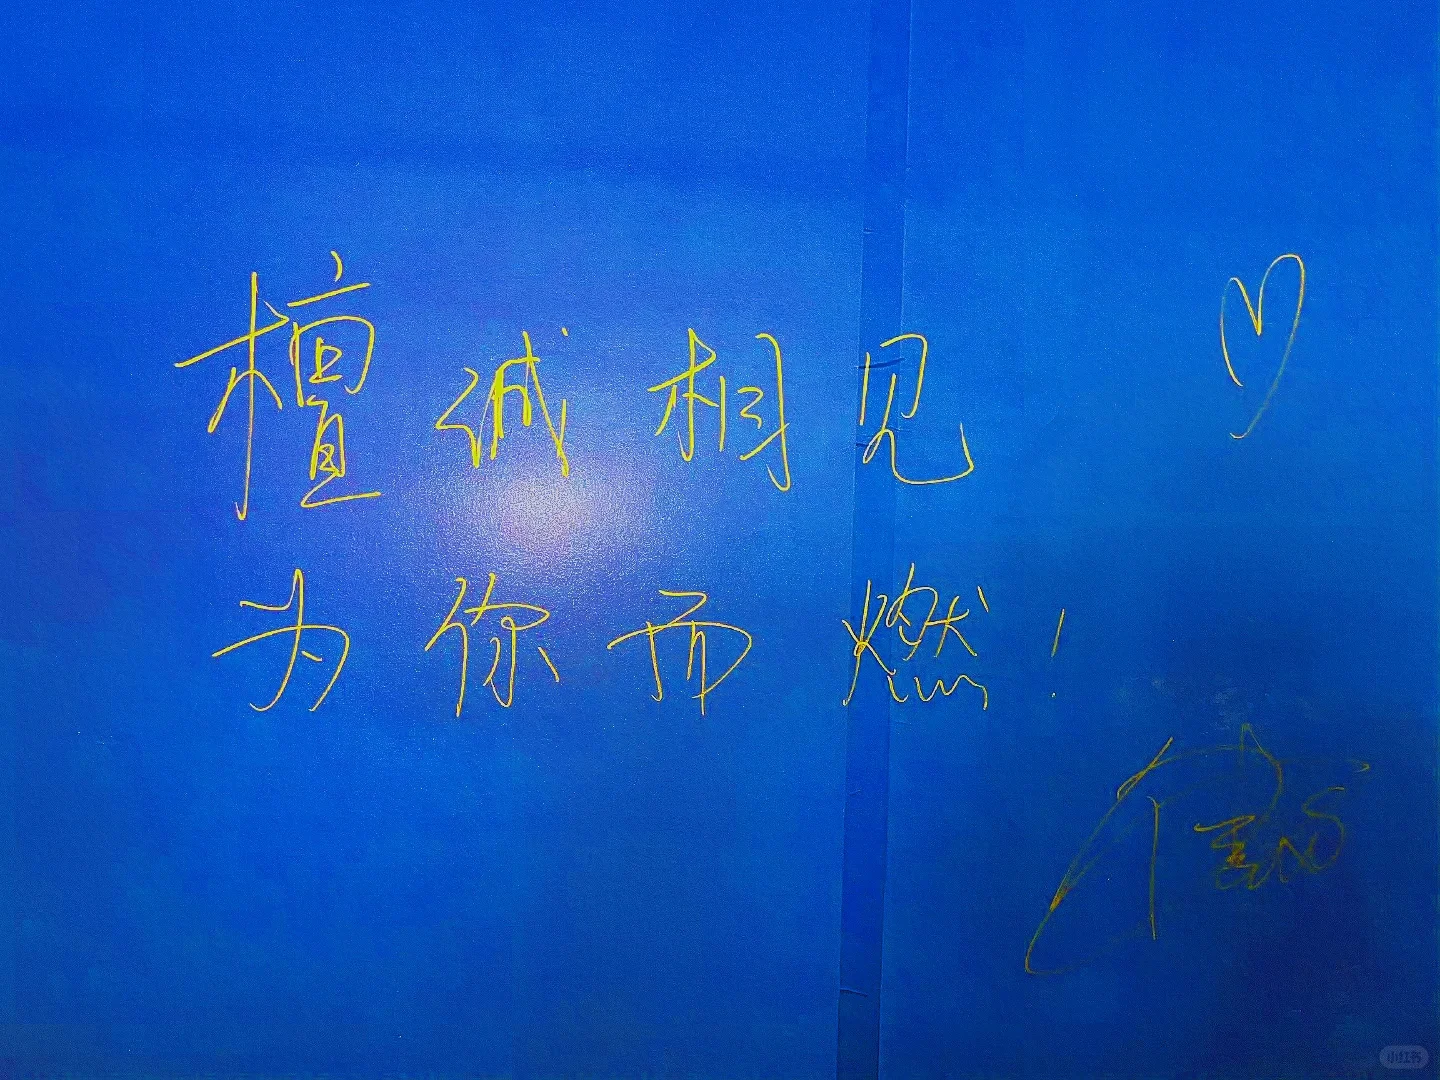 檀诚相见
为你而燃！
小红书